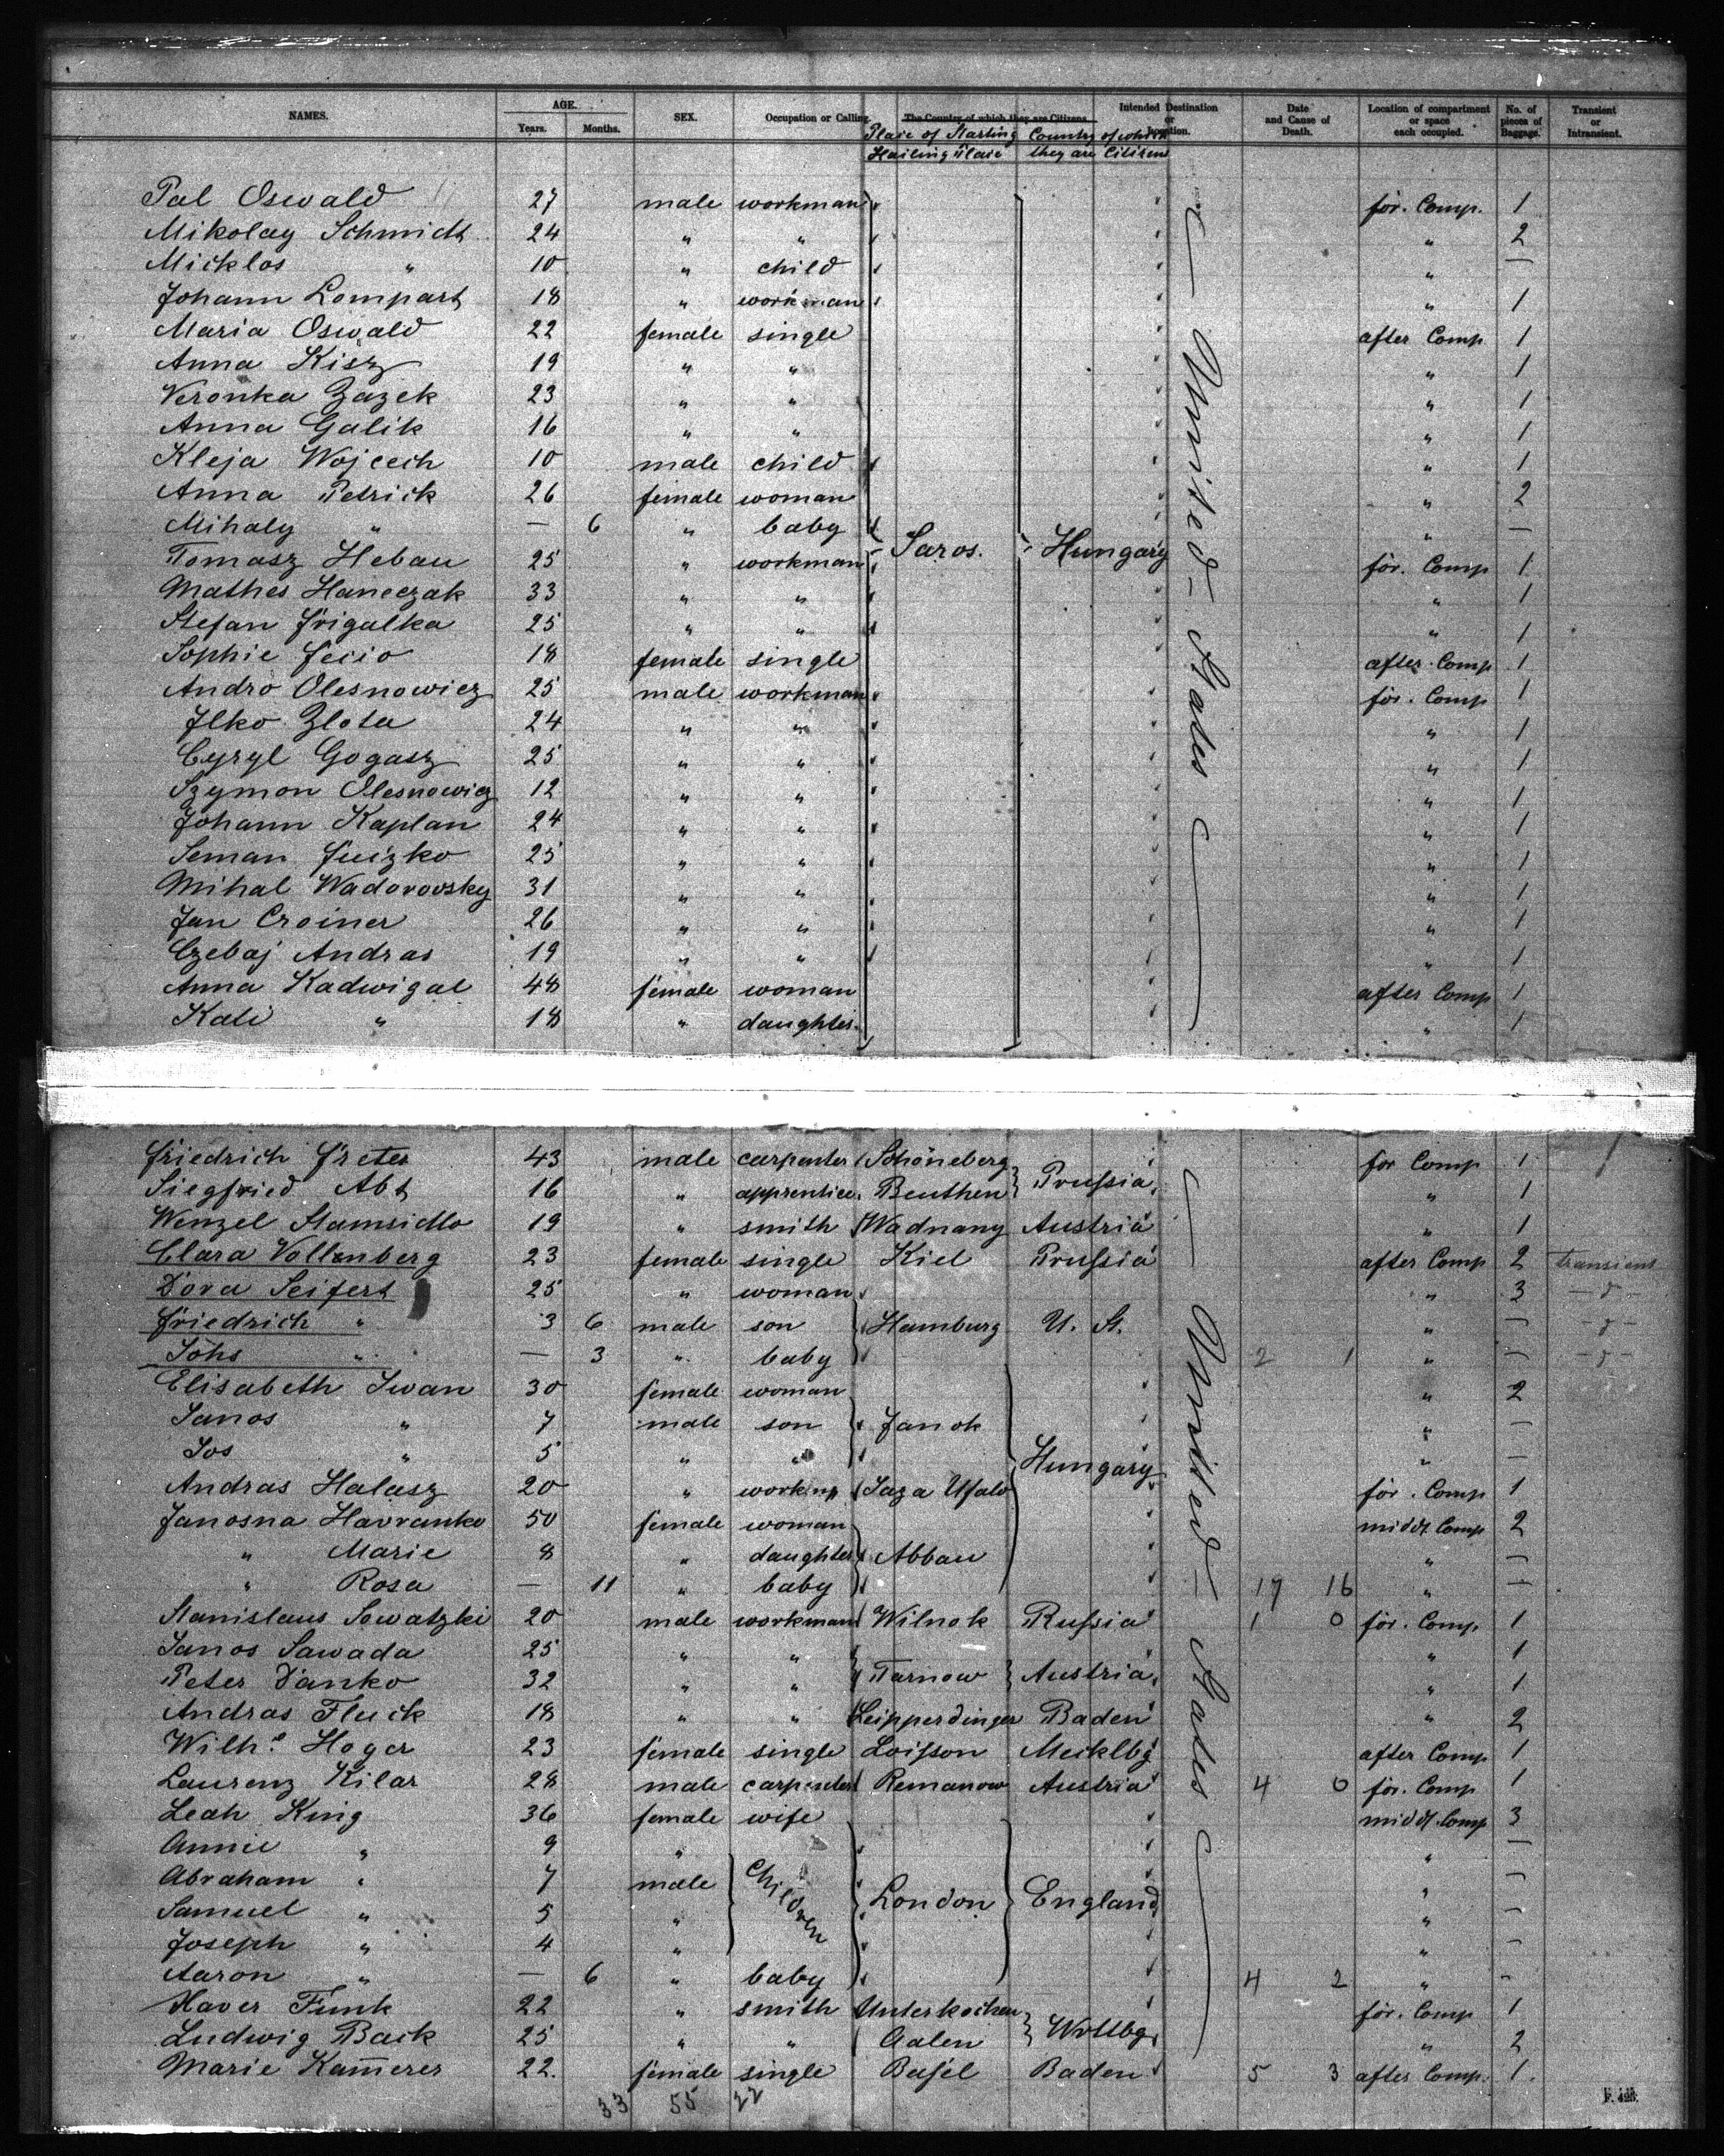 NAMES. AGE. Years. Months. SEX. Occupation or Calling. The Country of which they are Citizens. Intended Destination or Location. Date and Cause of Death. Location of compartment or space each occupied. No. of pieces of Baggage. Transient or Intransient.
Place of Starting Country of which
Hailing Place they are Citizens
Pal Oswald 27 male workman för. Comp. 1
Mikolay Schmidt 24 " " " 2
Micklos " 10 " child " —
Johann Lompart 18 " workman " 1
Maria Oswald 22 female single after Comp 1
Anna Kisz 19 " " " 1
Veronka Zazek 23 " " " 1
Anna Galik 16 " " " 1
Kleja Wojcech 10 male child " 1
Anna Petrick 26 female woman " 2
Mihaly " — 6 " baby " —
Saros. Hungary
United States
Tomasz Hebau 25 " workman för. Comp 1
Mathes Haneczak 33 " " " 1
Stefan Frigalka 25 " " " 1
Sophie Fecio 18 female single after Comp 1
Andro Olesnowicz 25 male workman för. Comp 1
Ilko Zlota 24 " " " 1
Cyryl Gogasz 25 " " " 1
Szymon Olesnowicz 12 " " " 1
Johann Kaplan 24 " " " 1
Seman Fuizko 25 " " " 1
Mihal Wadorovsky 31 " " " 1
Jan Croiner 26 " " " 1
Czebaj Andras 19 " " " 1
Anna Kadwigal 48 female woman after Comp 1
Kati " 18 " daughter " 1
Friedrich Freter 43 male carpenter Schöneberg for Comp 1
Siegfried Abt 16 " apprentice Beuthen Prussia " 1
Wenzel Stamsidlo 19 " smith Wadnany Austria " 1
Clara Vollenberg 23 female single Kiel Prussia after Comp 2 transient
Dora Seifert 25 " woman " 3 — " —
Friedrich " 3 6 male son Hamburg U. St. " — — " —
Johs " — 3 " baby 2 1 " — — " —
Elisabeth Iwan 30 female woman " 2
Janos " 7 male son Janok " —
Jos " 5 " " Hungary " —
United States
Andras Halasz 20 " workm Jaza Ufalo för. Comp 1
Janosna Havranko 50 female woman middl. Comp 2
" Marie 8 " daughter Abbau " —
" Rosa — 11 " baby 17 16 " —
Stanislaus Sowatzki 20 male workman Wilnok Russia 1 0 för. Comp. 1
Janos Sawada 25 " " " 1
Peter Danko 32 " " Tarnow Austria " 1
Andras Fluck 18 " " Leipperdinger Baden " 2
Wilhe Hoger 23 female single Loisson Mecklbg after Comp 1
Laurenz Kilar 28 male carpenter Remanow Austria 4 0 för. Comp 1
Leah King 36 female wife middl. Comp 3
Annie " 9 " " —
Abraham " 7 male Children " —
Samuel " 5 " London England " —
Joseph " 4 " " —
Aaron " — 6 " baby 4 2 " -
Xaver Funk 22 " smith Unterkochen för. Comp 1
Ludwig Back 25 " " Aalen Wrttbg. " 2
Marie Kamerer 22. female single Basel Baden 5 3 after Comp. 1.
33 55 22